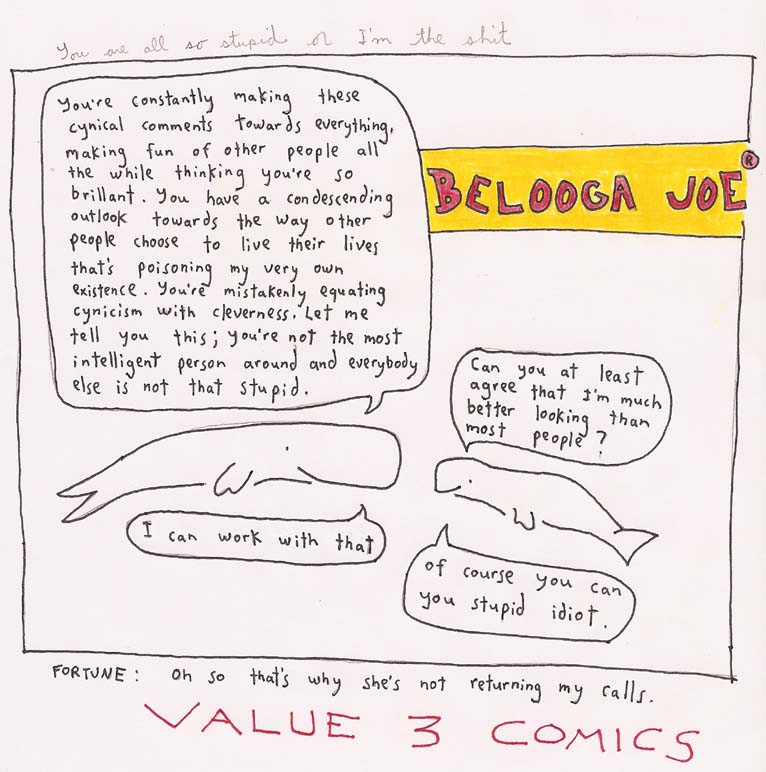 You are all so stupid or I'm the shit
You're constantly making these
cynical comments towards everything,
making fun of other people all
the while thinking you're so
brillant. You have a condescending
outlook towards the way other
people choose to live their lives
that's poisoning my very own
existence. You're mistakenly equating
cynicism with cleverness. Let me
tell you this; you're not the most
intelligent person around and everybody
else is not that stupid.
BELOOGA JOE®
Can you at least
agree that I'm much
better looking than
most people?
I can work with that
of course you can
you stupid idiot.
FORTUNE: Oh so that's why she's not returning my calls.
VALUE 3 COMICS